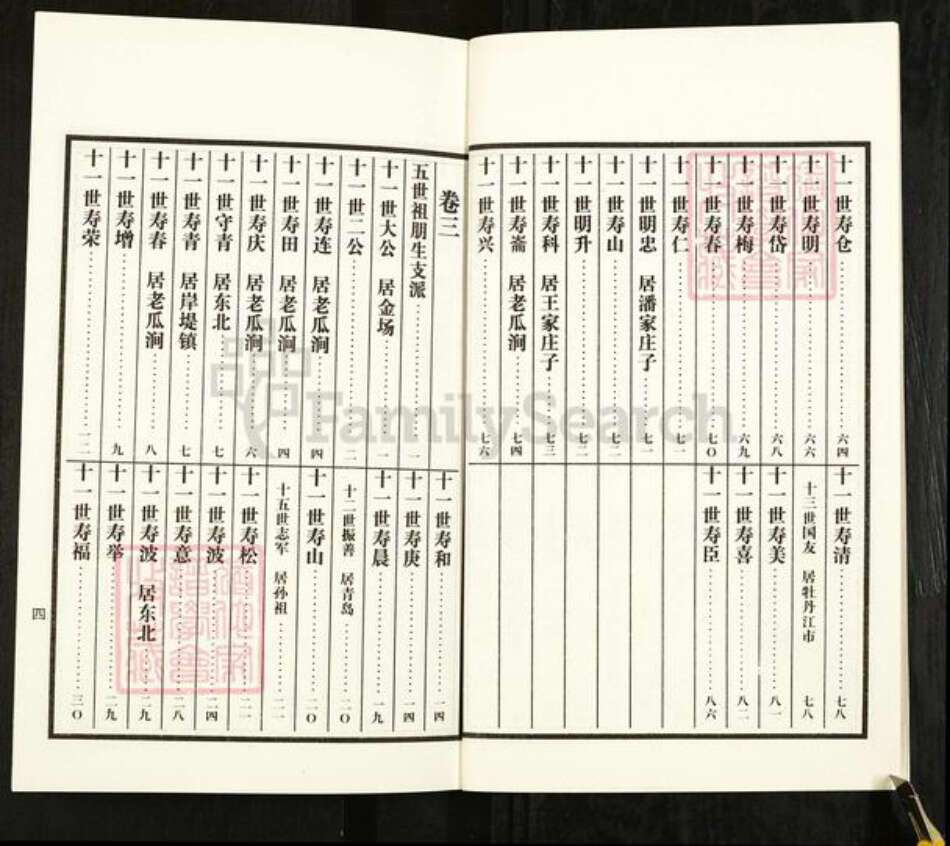 十一世寿仓……六四
十一世寿明……六六
十一世寿岱……六八
十一世寿梅……六九
十一世寿春……七〇
十一世寿仁……七一
十一世明忠 居潘家庄子……七一
十一世寿山……七二
十一世明升……七二
十一世寿科 居王家庄子……七三
十一世寿斋 居老瓜涧……七四
十一世寿兴……七六
十一世寿清……七八
十三世国友 居牡丹江市……七八
十一世寿美……八一
十一世寿喜……八二
十一世寿臣……八六
卷三
五世祖朋生支派……一
十一世大公 居金场……二
十一世二公……二
十一世寿连 居老瓜涧……四
十一世寿田 居老瓜涧……四
十一世寿庆 居老瓜涧……六
十一世守青 居东北……七
十一世寿青 居岸堤镇……七
十一世寿春 居老瓜涧……八
十一世寿增……九
十一世寿荣……一二
十一世寿和……一四
十一世寿庚……一四
十一世寿晨……一九
十二世振善 居青岛……二〇
十一世寿山……二〇
十五世志军 居孙祖……二二
十一世寿松……二二
十一世寿波……二四
十一世寿意……二八
十一世寿波 居东北……二九
十一世寿举……二九
十一世寿福……三〇
四
FamilySearch